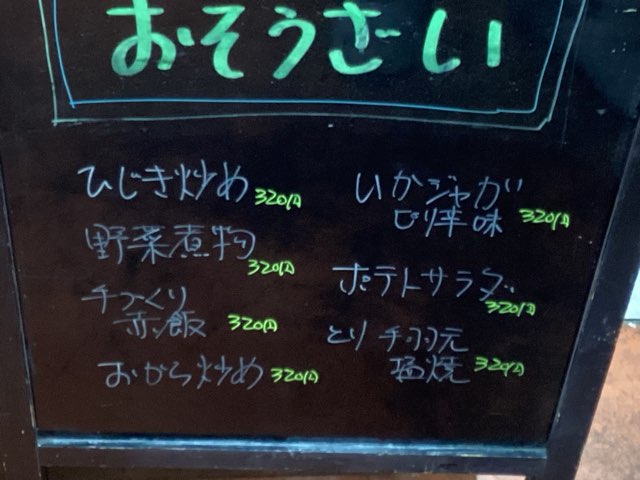 おそうざい
ひじき炒め 320円
野菜煮物
320円
手づくり
赤飯 320円
おから炒め 320円
いかジャガ
ピリ辛味 320円
ポテトサラダ
320円
とり手羽元
塩焼 320円